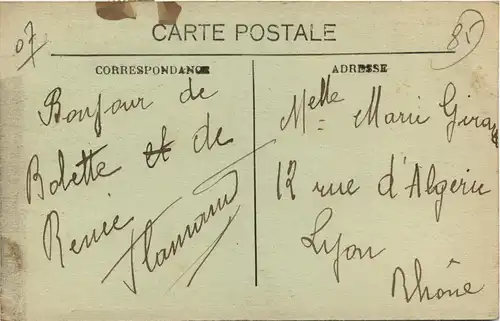 07
85
CARTE POSTALE
CORRESPONDANCE
Bonjour de
Bolette et de
Renée
Flamand
ADRESSE
Melle Marie Girard
12 rue d'Algerie
Lyon
Rhône